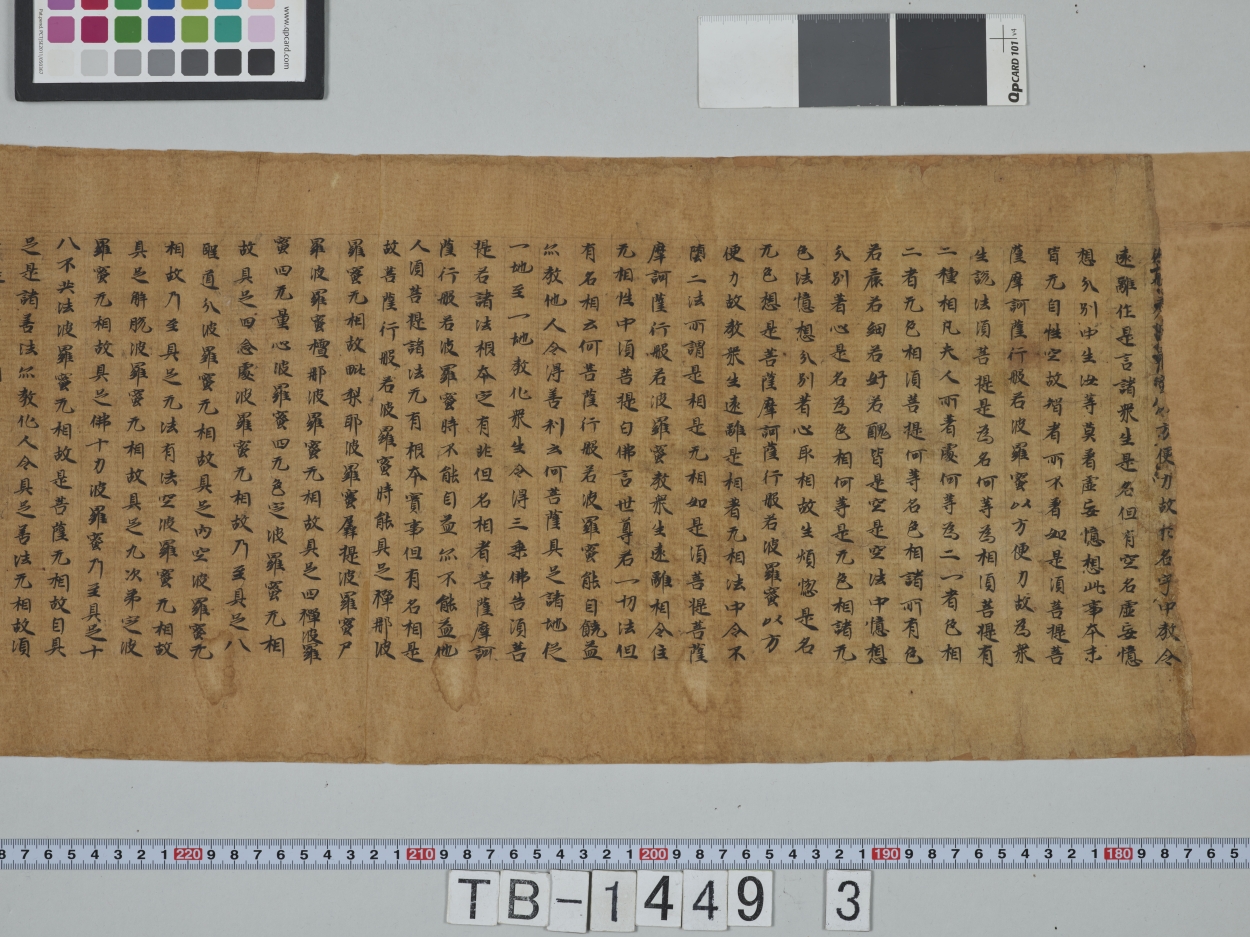 方便力故於名字中教令
遠離住是言諸衆生是名但有空名虛妄憶
想分別中生汝等莫著虛妄憶想此事本末
皆无自性空故智者所不著如是須菩提菩
薩摩訶薩行般若波羅蜜以方便力故為衆
生說法須菩提是為名何等為相須菩提有
二種相凡夫人所著處何等為二一者色相
二者无色相須菩提何等名色相諸所有色
若麁若細若好若醜皆是空是空法中憶想
分別著心是名為色相何等是无色相諸无
色法憶想分別著心取相故生煩惱是名
无色想是菩薩摩訶薩行般若波羅蜜以方
便力故教衆生遠離是相著无相法中令不
墮二法所謂是相是无相如是須菩提菩薩
摩訶薩行般若波羅蜜教衆生遠離相令住
无相性中須菩提白佛言世尊若一切法但
有名相云何菩薩行般若波羅蜜能自饒益
亦教他人令得善利云何菩薩具足諸地從
一地至一地教化衆生令得三乘佛告須菩
提若諸法根本定有非但名相者菩薩摩訶
薩行般若波羅蜜時不能自益亦不能益他
人須菩提諸法无有根本實事但有名相是
故菩薩行般若波羅蜜時能具足禪那波
羅蜜无相故毗梨耶波羅蜜羼提波羅蜜尸
羅波羅蜜檀那波羅蜜无相故具足四禪波羅
蜜四无量心波羅蜜四无色定波羅蜜无相
故具足四念處波羅蜜无相故乃至具足八
聖道分波羅蜜无相故具足內空波羅蜜无
相故乃至具足无法有法空波羅蜜无相故
具足解脫波羅蜜无相故具足九次第定波
羅蜜无相故具足佛十力波羅蜜乃至具足十
八不共法波羅蜜无相故是菩薩无相故自具
足是諸善法亦教化人令具足善法无相故須
www.qpcard.com
QPCARD 101 v4
8 7 6 5 4 3 2 1 220 9 8 7 6 5 4 3 2 1 210 9 8 7 6 5 4 3 2 1 200 9 8 7 6 5 4 3 2 1 190 9 8 7 6 5 4 3 2 1 180 9 8 7 6 5
TB-1449 3